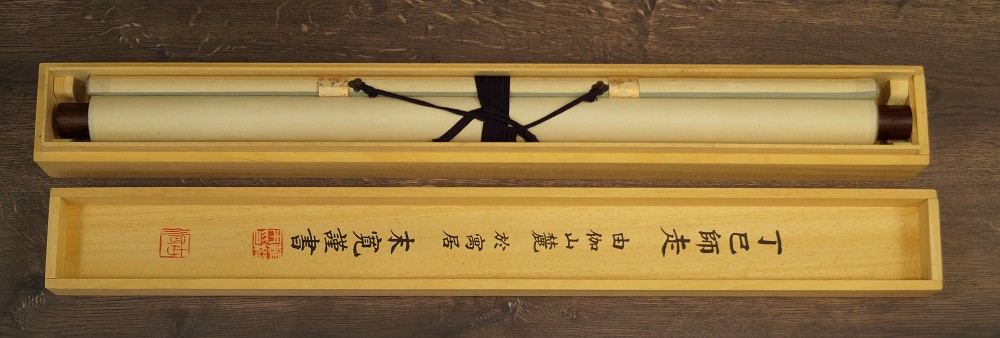 丁巳師走 由伽山麓 於寓居 末寛謹書